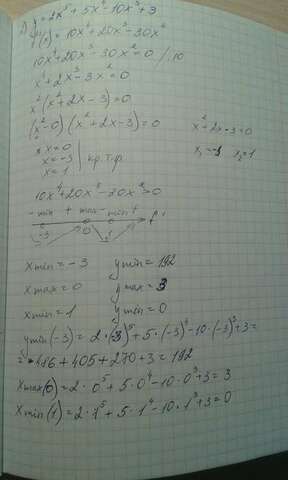 y = 2x⁵ + 5x⁴ - 10x³ + 3
y'(x) = 10x⁴ + 20x³ - 30x²
10x⁴ + 20x³ - 30x² = 0 / 10
x⁴ + 2x³ - 3x² = 0
x²(x² + 2x - 3) = 0
(x² - 0)(x² + 2x - 3) = 0
x² + 2x - 3 = 0
x₁ = -3 x₂ = 1
x = 0
x = -3 | кр.т.ф.
x = 1
10x⁴ + 20x³ - 30x² > 0
- min + max - min + f'
-3 0 1
xmin = -3 ymin = 192
xmax = 0 ymax = 3
xmin = 1 ymin = 0
ymin(-3) = 2·(-3)⁵ + 5·(-3)⁴ - 10·(-3)³ + 3 =
= -486 + 405 + 270 + 3 = 192
xmax(0) = 2·0⁵ + 5·0⁴ - 10·0³ + 3 = 3
xmin(1) = 2·1⁵ + 5·1⁴ - 10·1³ + 3 = 0